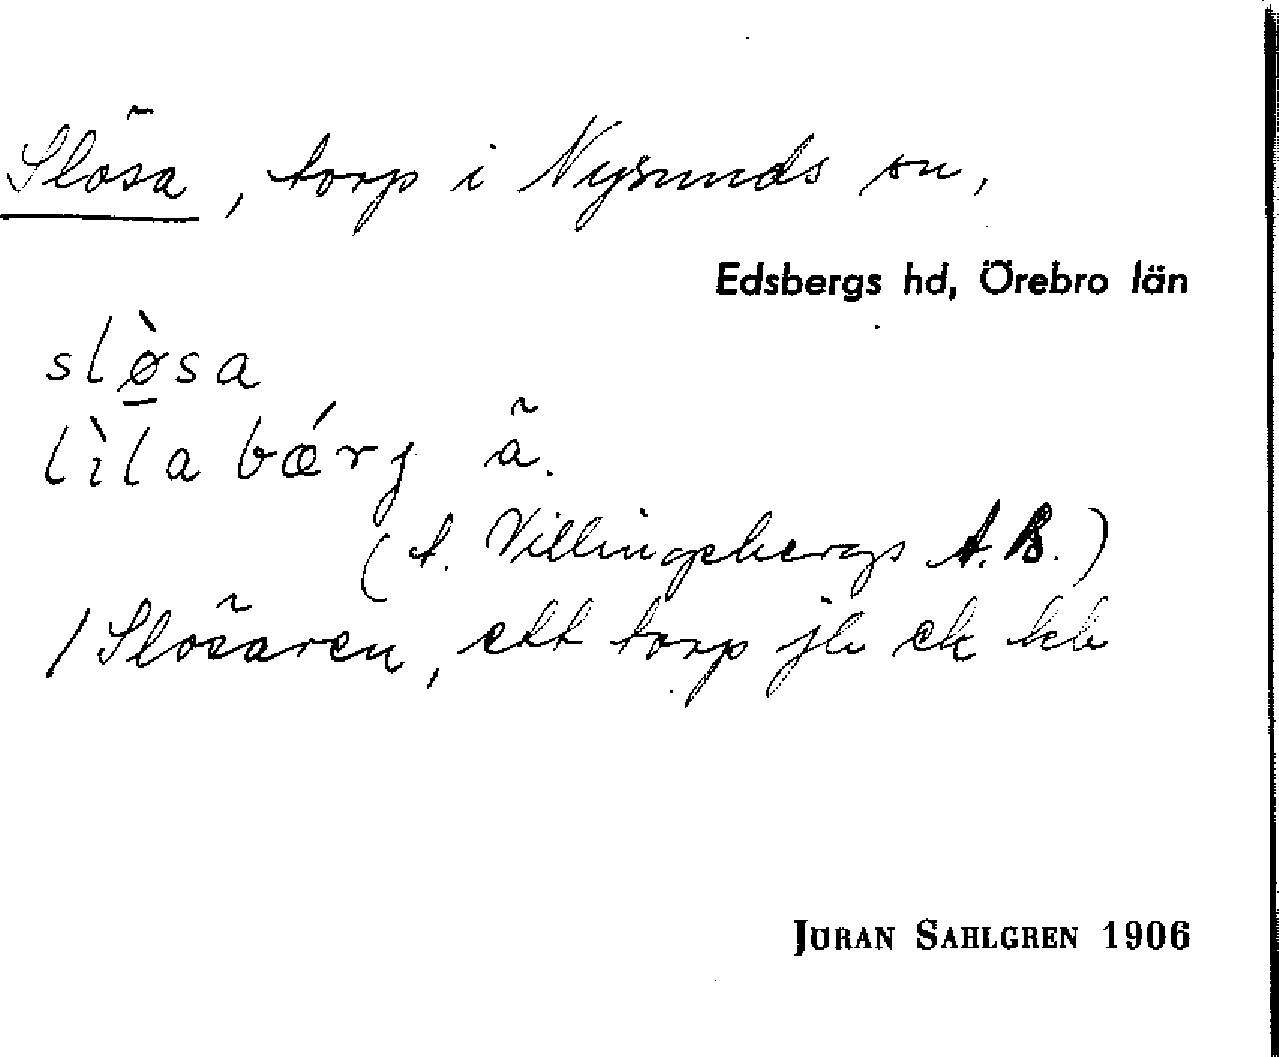 Slösa, torp i Nysunds sn,
Edsbergs hd, Örebro län
slø̀sa
lìla bǽrj ä.
(t. Villingsbergs A.B.)
/ Slösaren, ett torp jb ek kb
JÖRAN SAHLGREN 1906